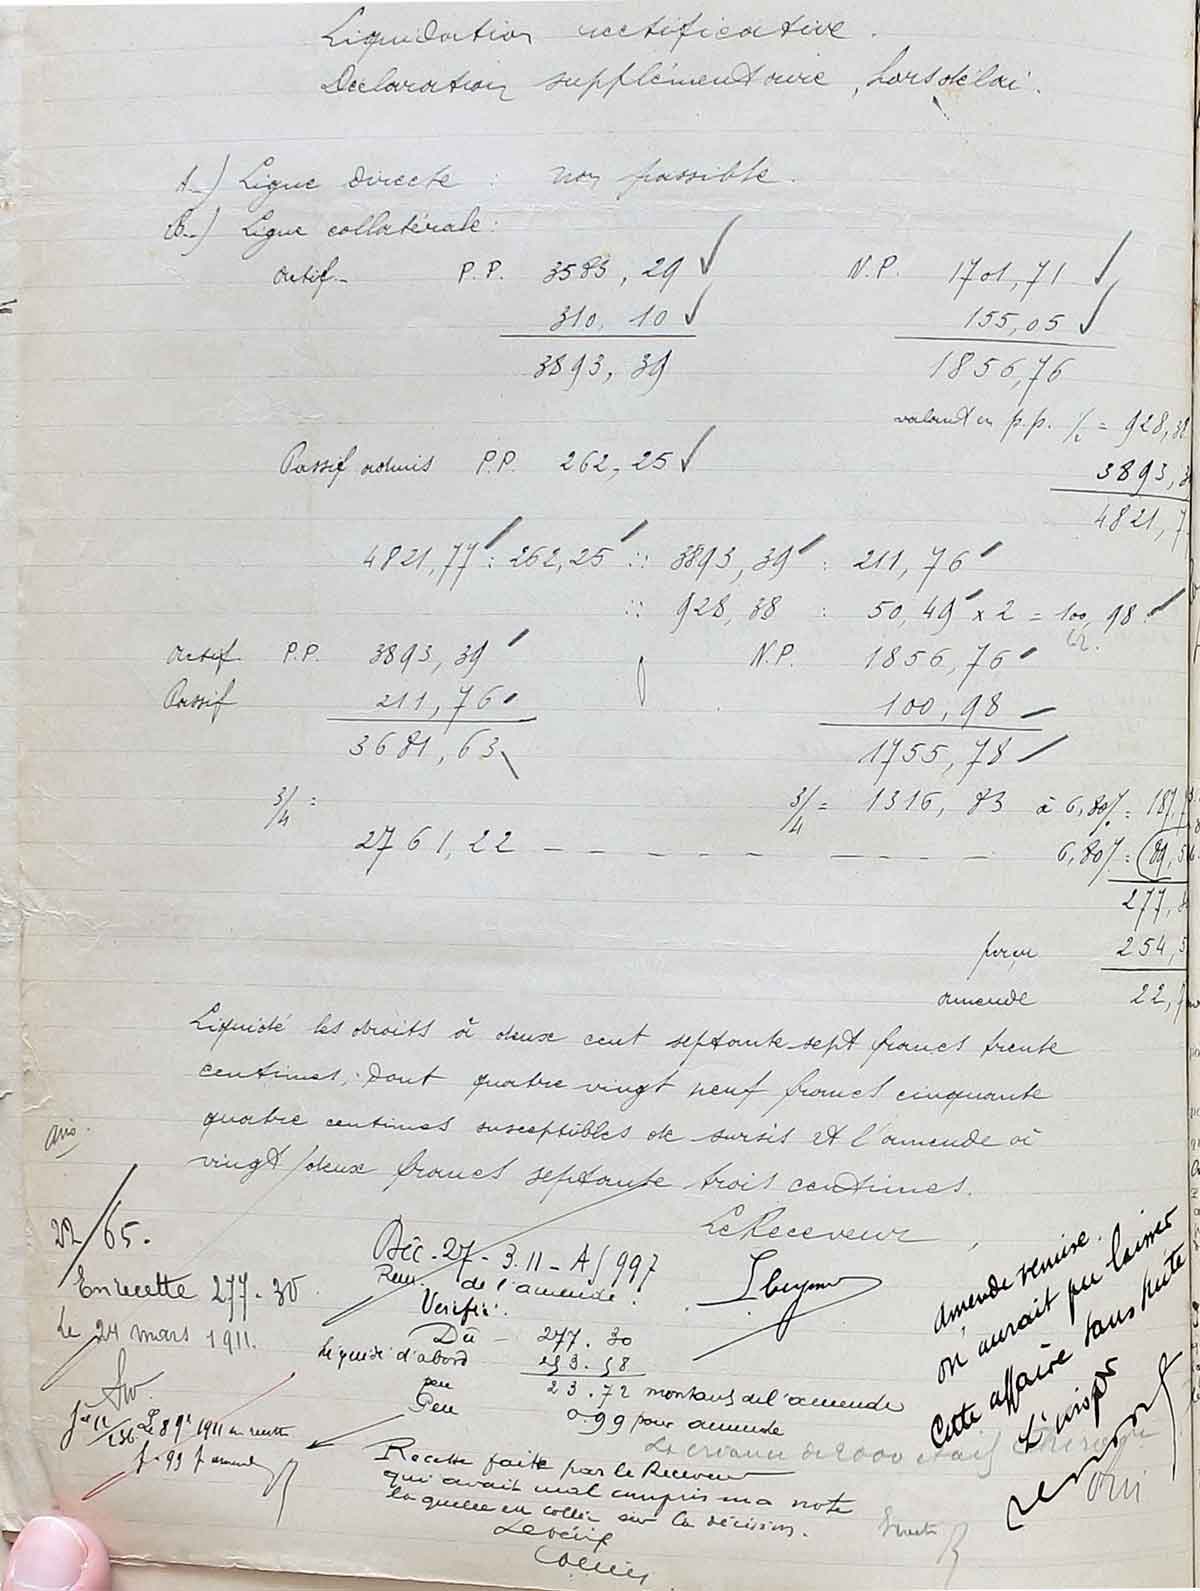 Liquidation rectificative.
Déclaration supplémentaire, hors délai.
A.) Ligne directe : non passible.
B.) Ligne collatérale :
actif P.P. 3583,29 N.P. 1701,71
310,10 155,05
3893,39 1856,76
valant en p.p. 1/2 = 928,38
Passif admis P.P. 262,25 3893,3
4821,7
4821,77 : 262,25 :: 3893,39 : 211,76
:: 928,38 : 50,49 x 2 = 100,98
actif P.P. 3893,39 N.P. 1856,76
Passif 211,76 100,98
3681,63 1755,78
3/4 = 3/4 = 1316,83 à 6,80% = 187,7
2761,22 — — — — — — — — 6,80% = 89,5
277,
perçu 254,5
amende 22,7
Liquidé les droits à deux cent septante-sept francs trente
centimes, dont quatre vingt neuf francs cinquante
quatre centimes susceptibles de sursis et l'amende à
vingt deux francs septante trois centimes.
Le Receveur,
avis.
22/65.
En recette 277-30
le 24 mars 1911.
Déc. 27-3.11 - A/997
Rem. de l'amende.
Vérifié :
Dû — 277.30
liquidé d'abord 253.58
23.72 montant de l'amende
Peu 0.99 pour amende
Le 8 1911 en recette
f. 99
Recette faite par le Receveur
qui avait mal compris ma note
laquelle est collée sur la décision.
Le vérif
amende remise.
on aurait pu laisser
cette affaire sans suite
L'insp
La créance de 2000 était
oui